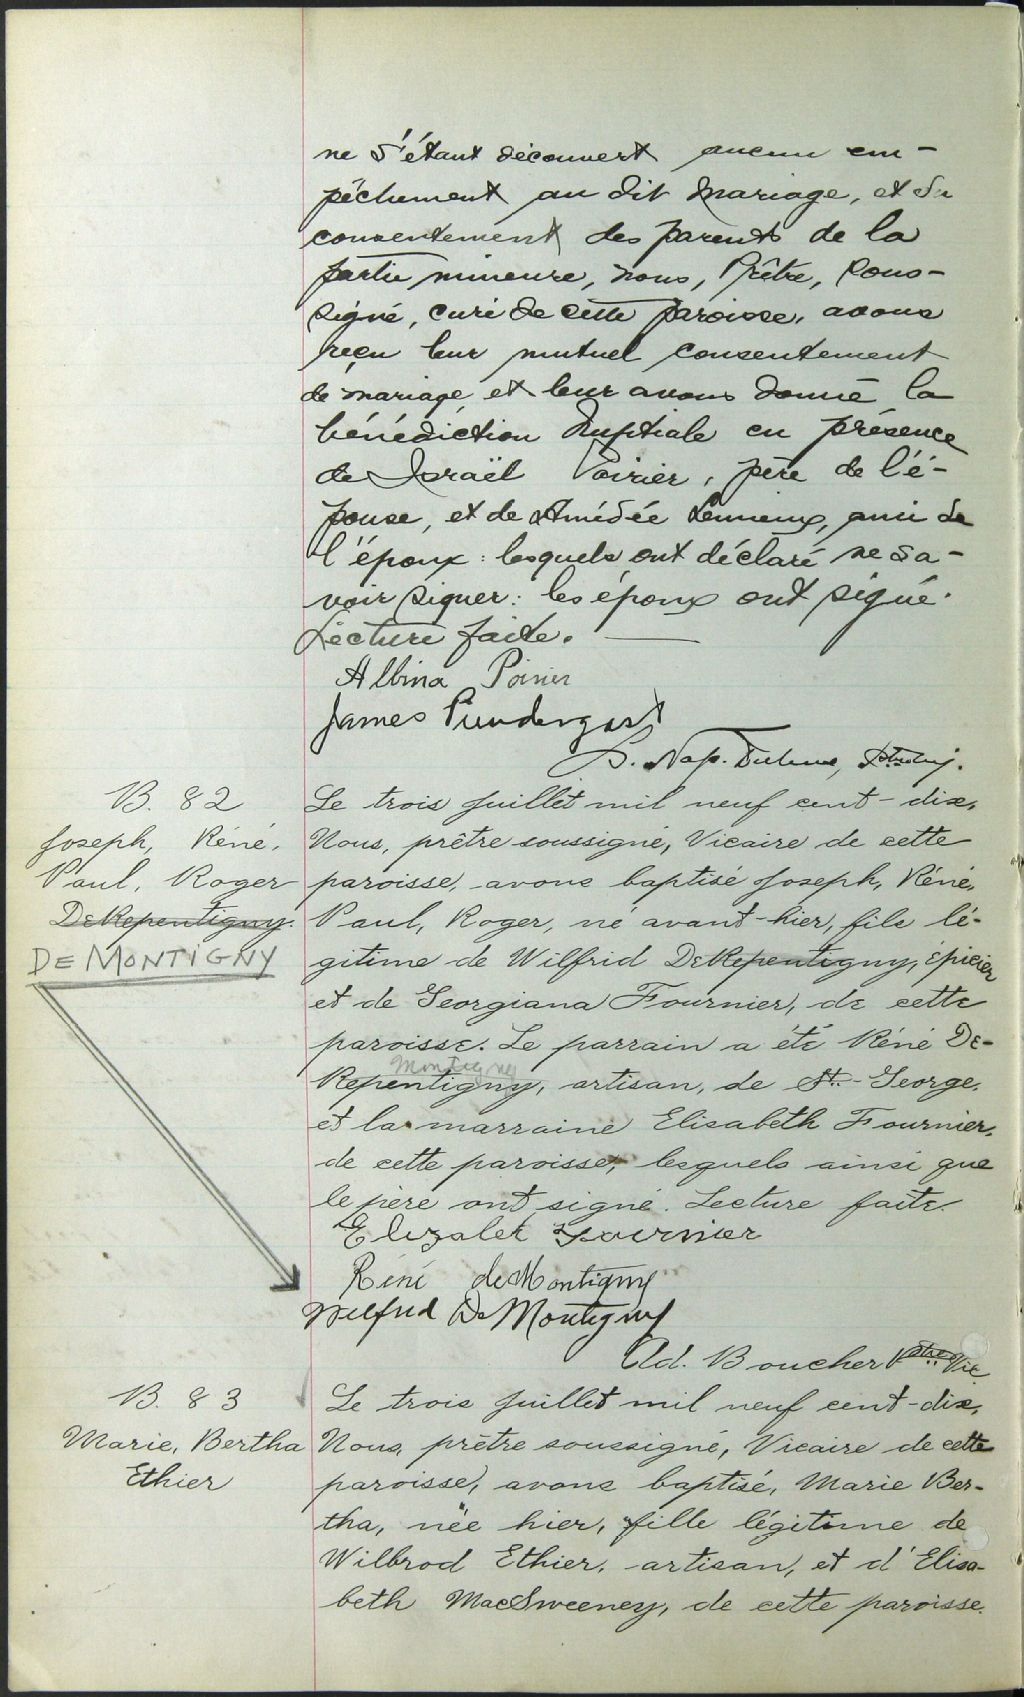 ne s'étant découvert aucun em-
pêchement au dit mariage, et du
consentement des parents de la
partie mineure, nous, Prêtre, sous-
signé, curé de cette paroisse, avons
reçu leur mutuel consentement
de mariage et leur avons donné la
bénédiction nuptiale en présence
de Israël Poirier, père de l'é-
pouse, et de Amédée Lemieux, ami de
l'époux: lesquels ont déclaré ne sa-
voir signer: les époux ont signé.
Lecture faite.
Albina Poirier
James Pundergast
Nap.
B. 82
Joseph, Réné,
Paul, Roger
DeRepentigny.
DE MONTIGNY
Le trois juillet mil neuf cent-dix,
Nous, prêtre soussigné, Vicaire de cette
paroisse, avons baptisé Joseph, Réné,
Paul, Roger, né avant-hier, fils lé-
gitime de Wilfrid DeRepentigny, épicier
et de Georgiana Fournier, de cette
paroisse. Le parrain a été Réné De-
Montigny
Repentigny, artisan, de St.-George,
et la marraine Elisabeth Fournier,
de cette paroisse, lesquels ainsi que
le père ont signé. Lecture faite.
Elizabet Fournier
Réné deMontigny
Wilfrid De Montigny
Ad. Boucher Ptre Vic
B. 83
Marie, Bertha
Ethier
Le trois juillet mil neuf cent-dix,
Nous, prêtre soussigné, Vicaire de cette
paroisse, avons baptisé, Marie Ber-
tha, née hier, fille légitime de
Wilbrod Ethier, artisan, et d'Elisa-
beth MacSweeney, de cette paroisse.